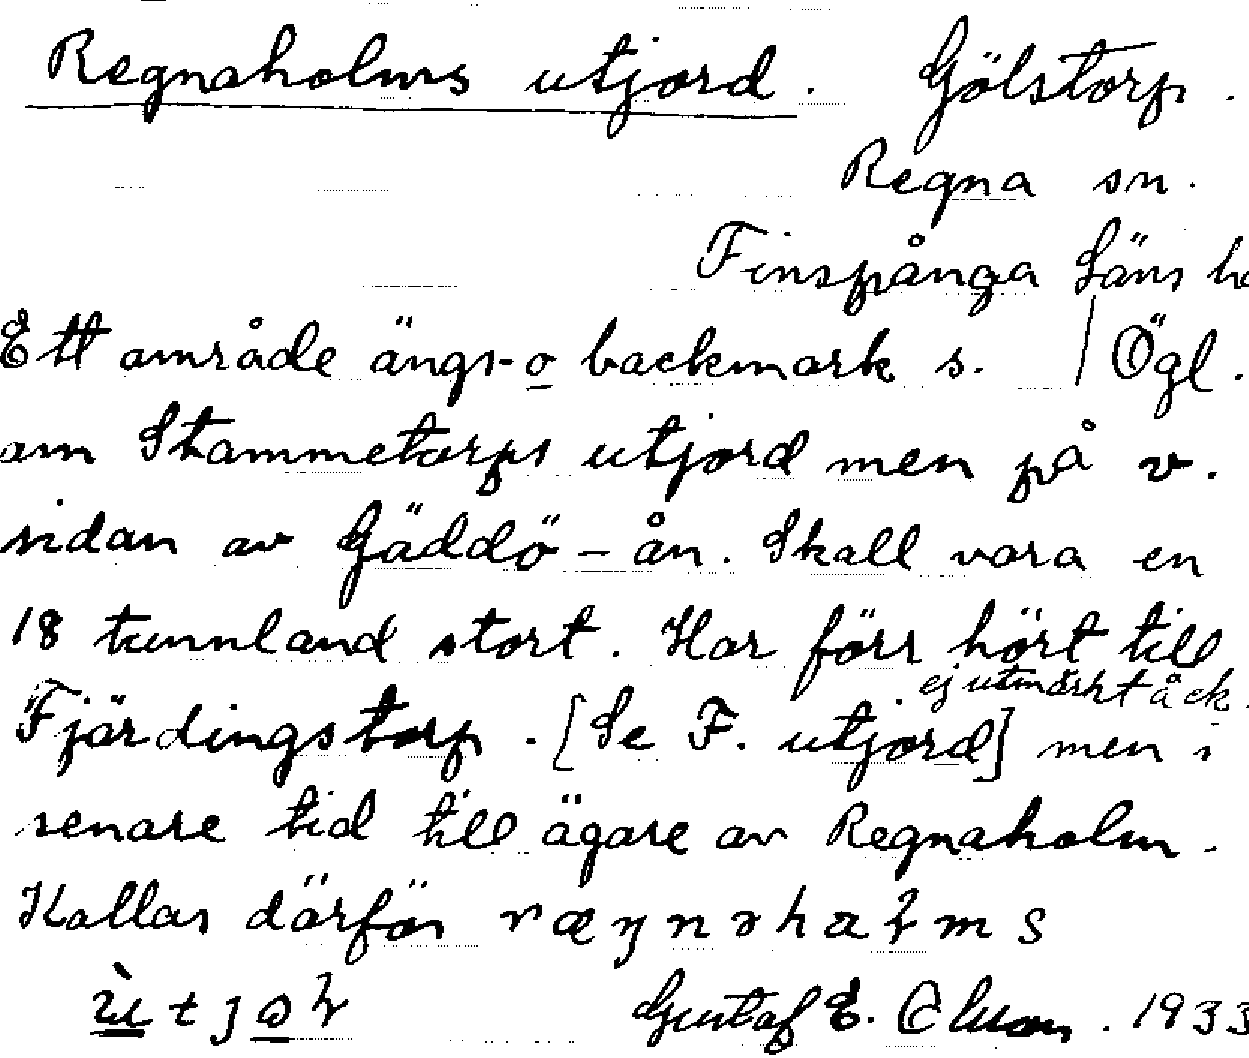 Regnaholms utjord. Gölstorp.
Regna sn.
Finspånga läns h
Ett område ängs- o backmark s. | Ögl.
om Stammetorps utjord men på v.
sidan av Gäddö-ån. Skall vara en
18 tunnland stort. Har förr hört till
ej utmärkt å ek.
Fjärdingstorp. [Se F. utjord] men i
senare tid till ägare av Regnaholm.
Kallas därför
Gustaf E. 1933